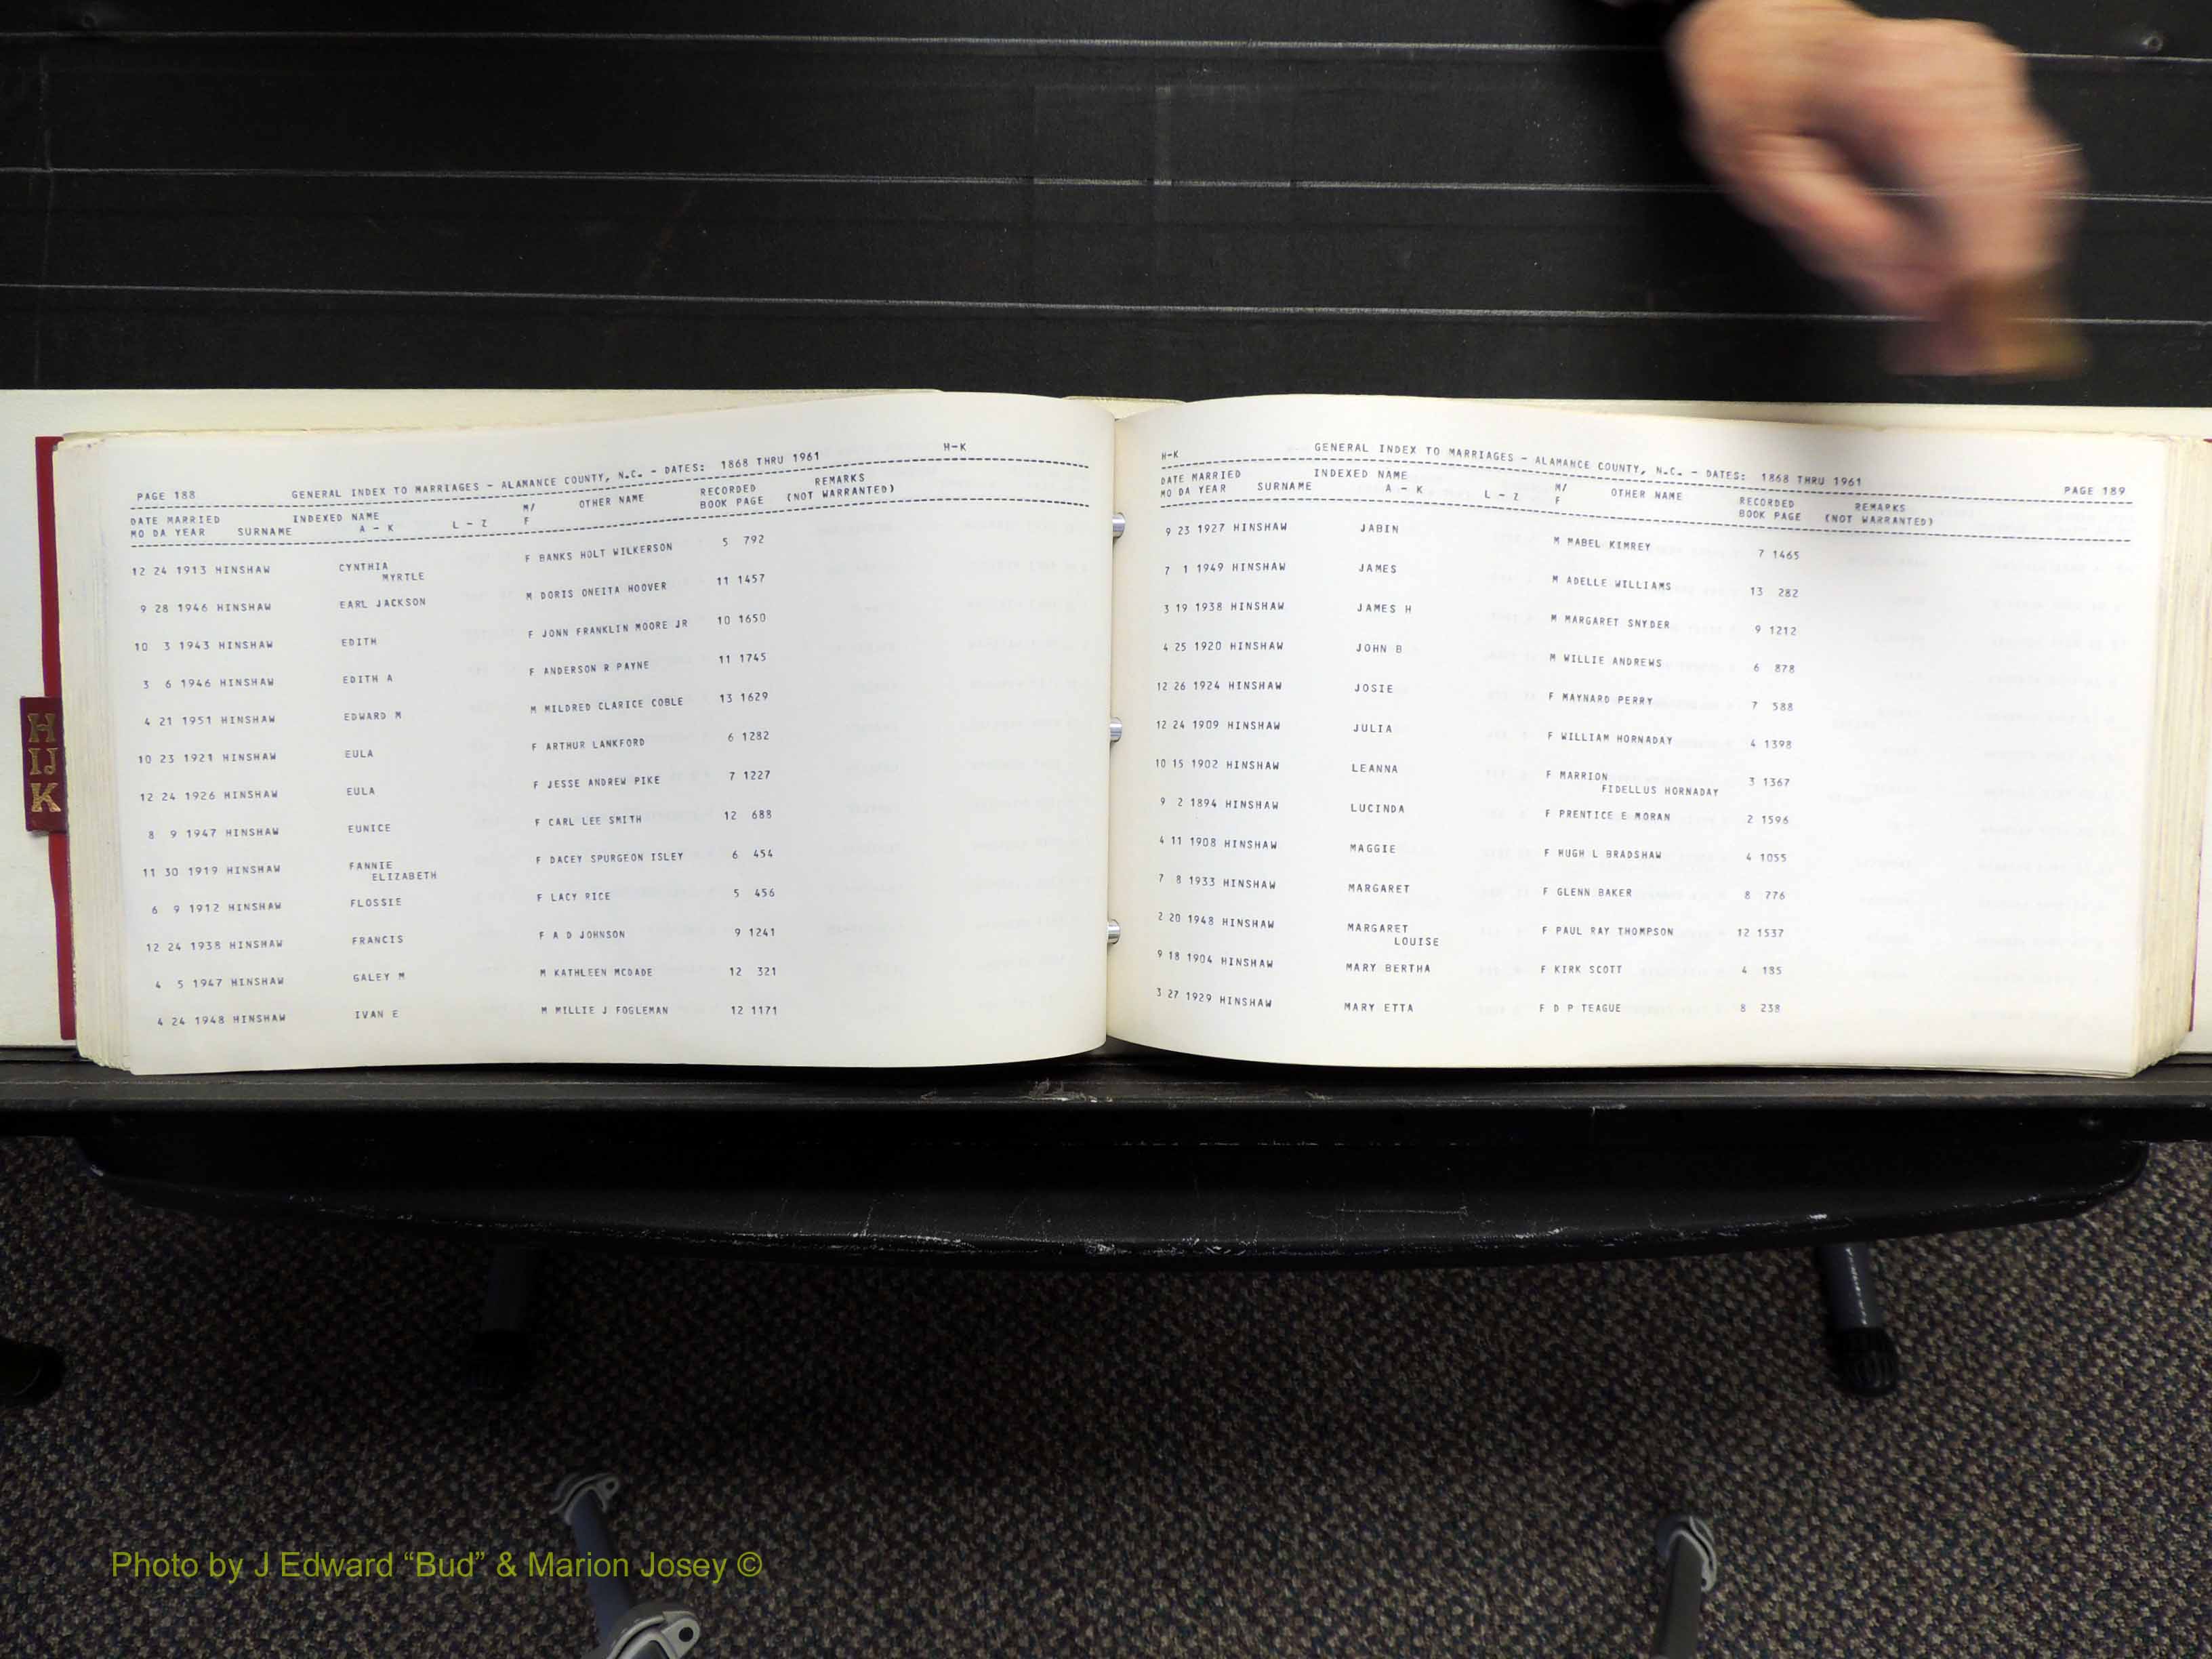 H
IJ
K
H-K
PAGE 188 GENERAL INDEX TO MARRIAGES - ALAMANCE COUNTY, N.C. - DATES: 1868 THRU 1961
DATE MARRIED INDEXED NAME M/ OTHER NAME RECORDED REMARKS
MO DA YEAR SURNAME A - K L - Z F BOOK PAGE (NOT WARRANTED)
12 24 1913 HINSHAW CYNTHIA F BANKS HOLT WILKERSON 5 792
MYRTLE
9 28 1946 HINSHAW EARL JACKSON M DORIS ONEITA HOOVER 11 1457
10 3 1943 HINSHAW EDITH F JONN FRANKLIN MOORE JR 10 1650
3 6 1946 HINSHAW EDITH A F ANDERSON R PAYNE 11 1745
4 21 1951 HINSHAW EDWARD M M MILDRED CLARICE COBLE 13 1629
10 23 1921 HINSHAW EULA F ARTHUR LANKFORD 6 1282
12 24 1926 HINSHAW EULA F JESSE ANDREW PIKE 7 1227
8 9 1947 HINSHAW EUNICE F CARL LEE SMITH 12 688
11 30 1919 HINSHAW FANNIE F DACEY SPURGEON ISLEY 6 454
ELIZABETH
6 9 1912 HINSHAW FLOSSIE F LACY RICE 5 456
12 24 1938 HINSHAW FRANCIS F A D JOHNSON 9 1241
4 5 1947 HINSHAW GALEY M M KATHLEEN MCDADE 12 321
4 24 1948 HINSHAW IVAN E M MILLIE J FOGLEMAN 12 1171
H-K GENERAL INDEX TO MARRIAGES - ALAMANCE COUNTY, N.C. - DATES: 1868 THRU 1961 PAGE 189
DATE MARRIED INDEXED NAME M/ OTHER NAME RECORDED REMARKS
MO DA YEAR SURNAME A - K L - Z F BOOK PAGE (NOT WARRANTED)
9 23 1927 HINSHAW JABIN M MABEL KIMREY 7 1465
7 1 1949 HINSHAW JAMES M ADELLE WILLIAMS 13 282
3 19 1938 HINSHAW JAMES H M MARGARET SNYDER 9 1212
4 25 1920 HINSHAW JOHN B M WILLIE ANDREWS 6 878
12 26 1924 HINSHAW JOSIE F MAYNARD PERRY 7 588
12 24 1909 HINSHAW JULIA F WILLIAM HORNADAY 4 1398
10 15 1902 HINSHAW LEANNA F MARRION 3 1367
FIDELLUS HORNADAY
9 2 1894 HINSHAW LUCINDA F PRENTICE E MORAN 2 1596
4 11 1908 HINSHAW MAGGIE F HUGH L BRADSHAW 4 1055
7 8 1933 HINSHAW MARGARET F GLENN BAKER 8 776
2 20 1948 HINSHAW MARGARET F PAUL RAY THOMPSON 12 1537
LOUISE
9 18 1904 HINSHAW MARY BERTHA F KIRK SCOTT 4 185
3 27 1929 HINSHAW MARY ETTA F D P TEAGUE 8 238
Photo by J Edward “Bud” & Marion Josey ©